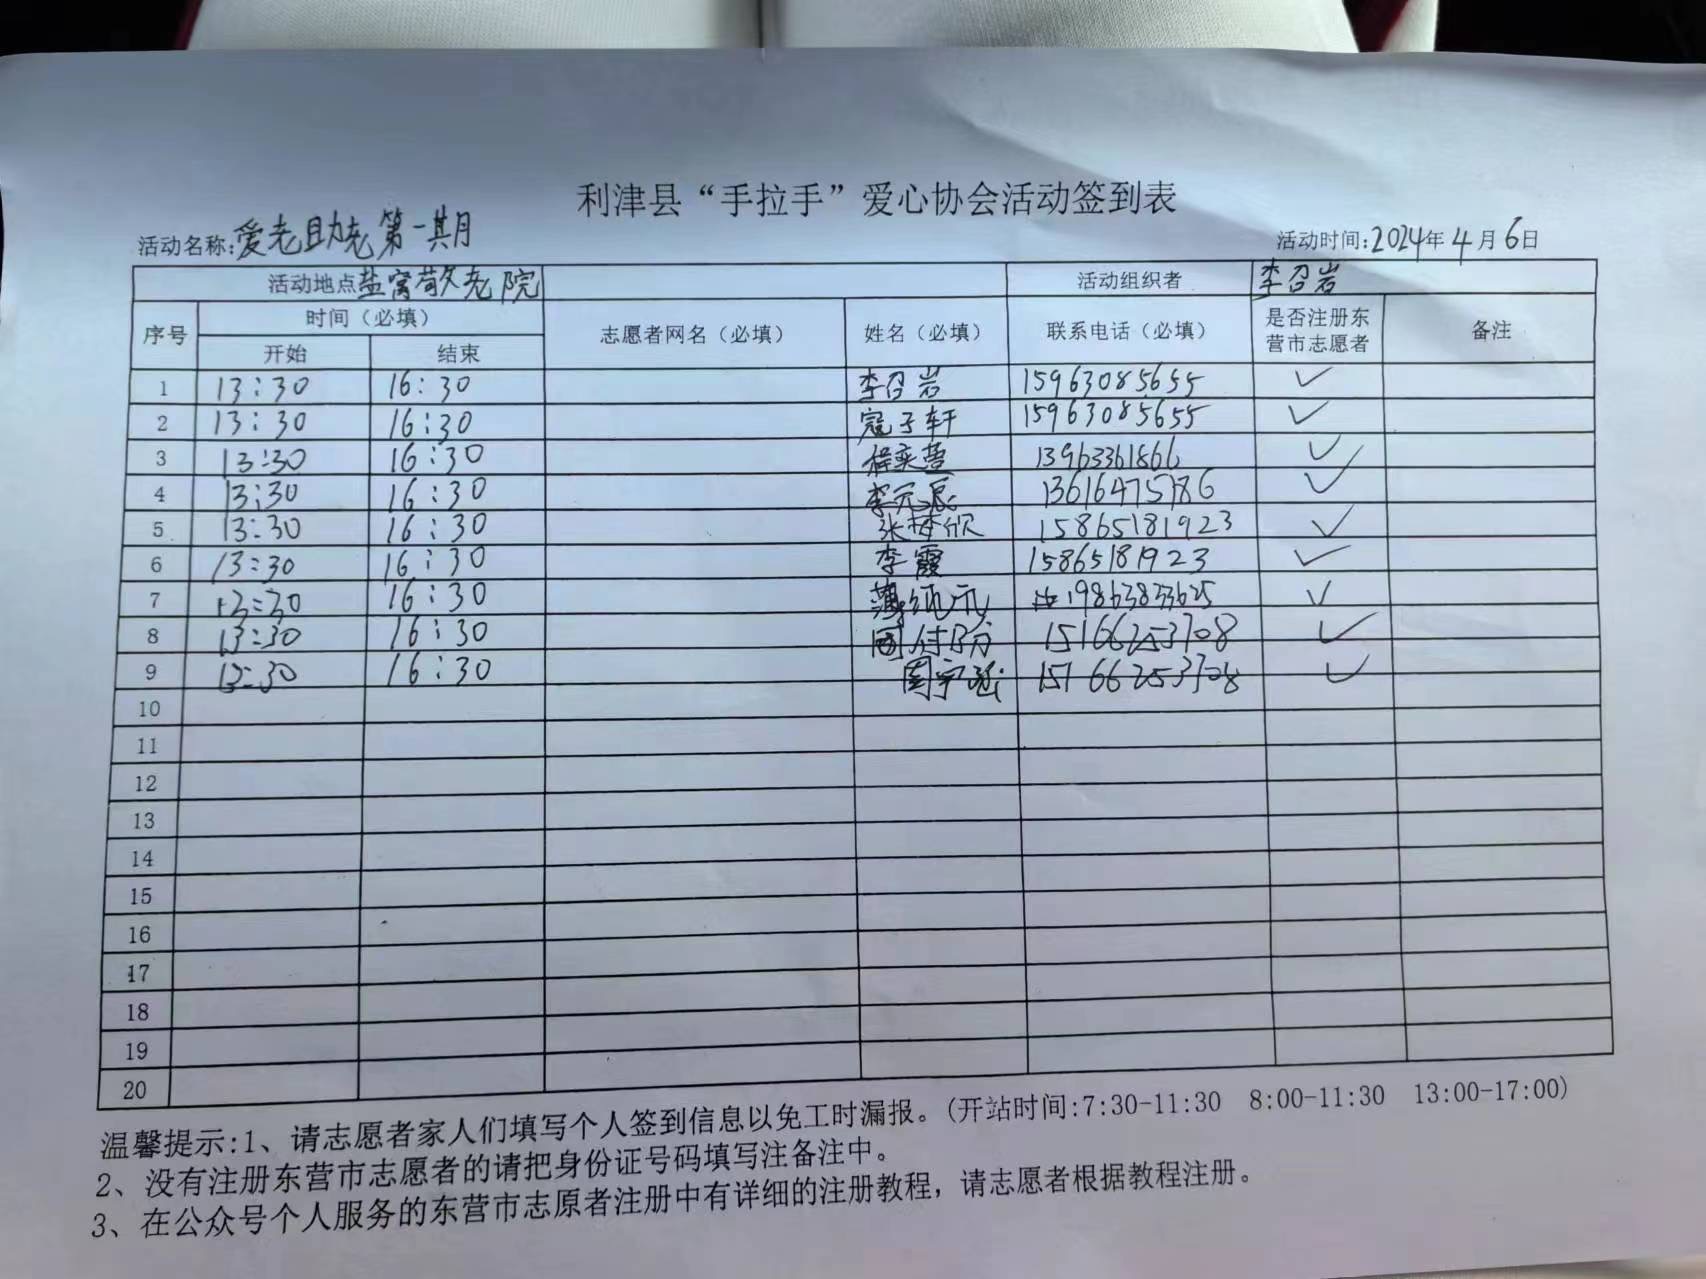 利津县“手拉手”爱心协会活动签到表
活动名称:爱老助老第一期 活动时间:2024年4月6日
活动地点 盐窝敬老院 活动组织者 李召岩
序号 时间（必填） 志愿者网名（必填） 姓名（必填） 联系电话（必填） 是否注册东营市志愿者 备注
开始 结束
1 13:30 16:30 李召岩 15963085655 ✓
2 13:30 16:30 寇子轩 15963085655 ✓
3 13:30 16:30 程奕萱 13963361866 ✓
4 13:30 16:30 李元辰 13616475186 ✓
5 13:30 16:30 张梦欣 15865181923 ✓
6 13:30 16:30 李霞 15865181923 ✓
7 13:30 16:30 薄 元 19863833625 ✓
8 13:30 16:30 15166253708 ✓
9 13:30 16:30 周宇涵 15166253708 ✓
10
11
12
13
14
15
16
17
18
19
20
温馨提示:1、请志愿者家人们填写个人签到信息以免工时漏报。(开站时间:7:30-11:30 8:00-11:30 13:00-17:00)
2、没有注册东营市志愿者的请把身份证号码填写注备注中。
3、在公众号个人服务的东营市志原者注册中有详细的注册教程，请志愿者根据教程注册。